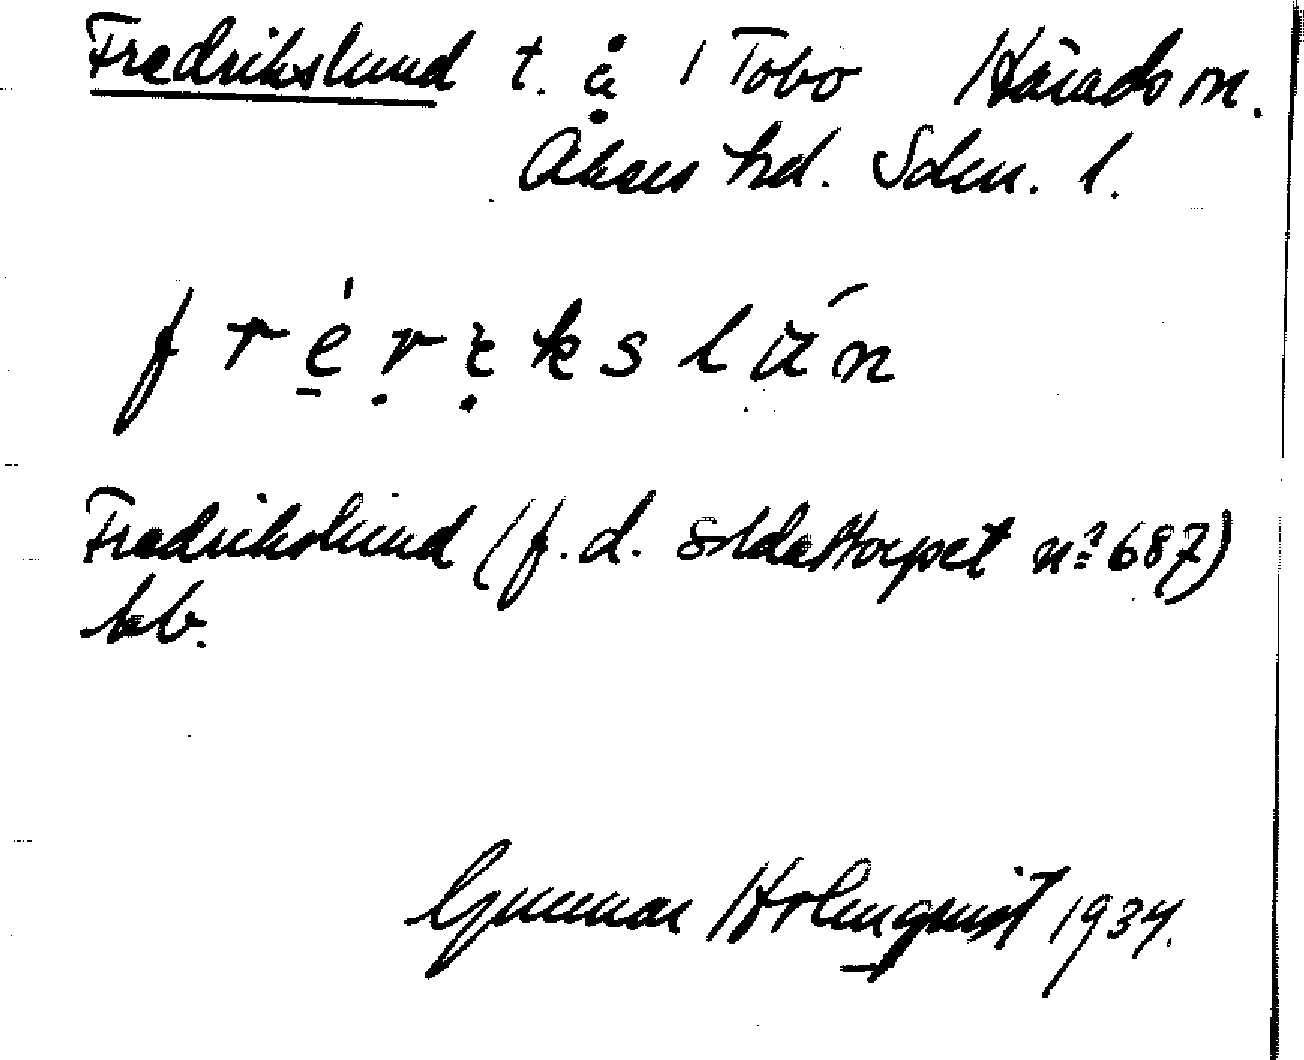 Fredrikslund t. å 1 Tobo Härads sn.
Åkers hd. Sdm. l.
frèrẹkslún
Fredrikslund (f.d. soldattorpet nº 687)
kb.
Gunnar Holmquist 1934.